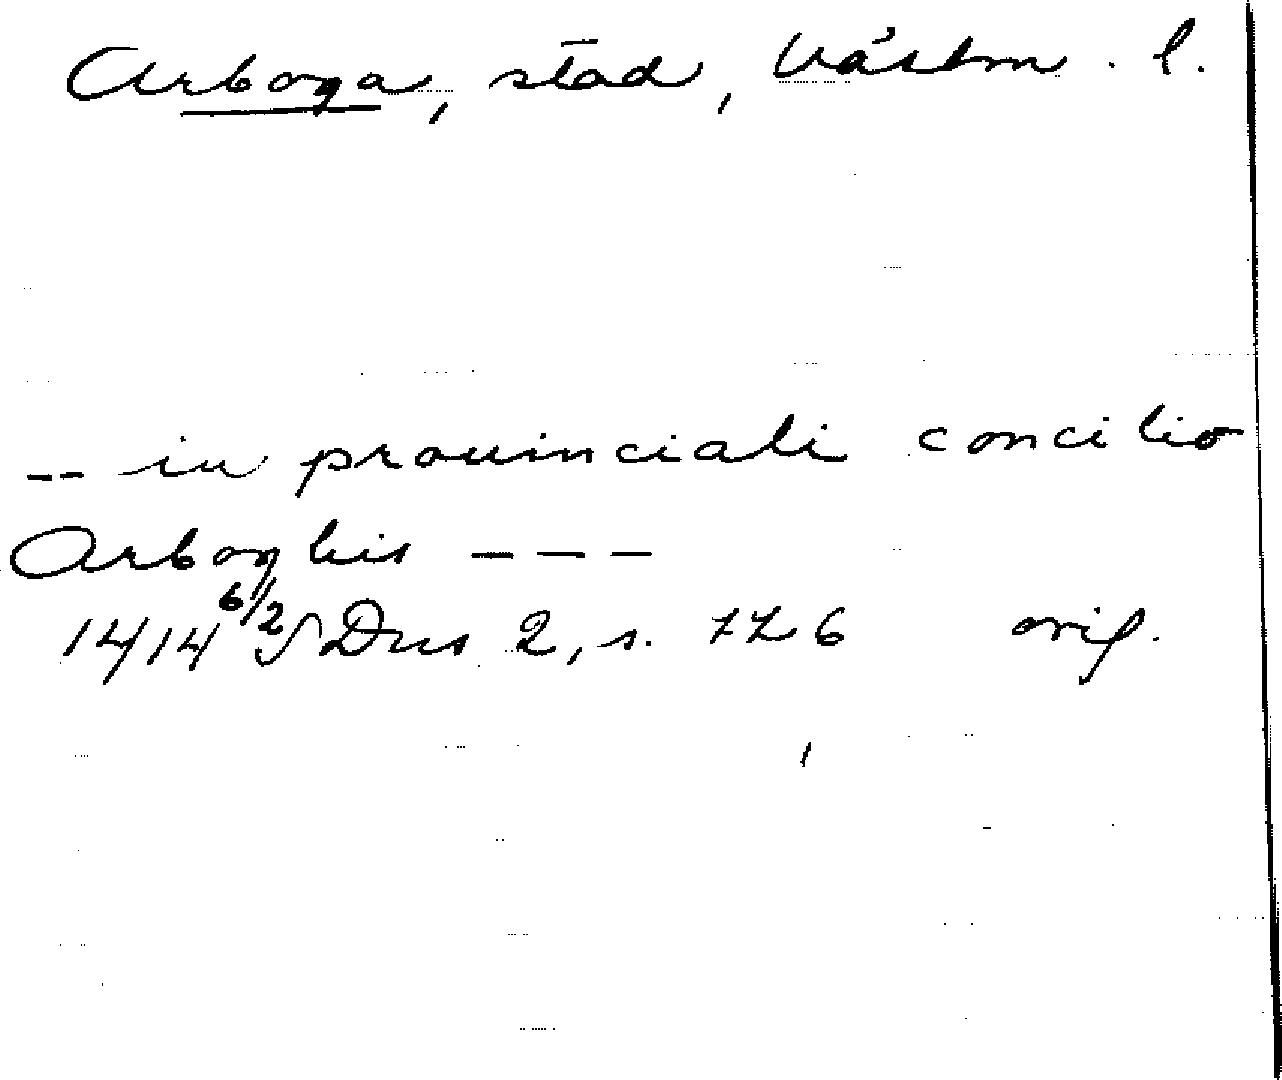 Arboga, stad, Västm. l.
-- in prouinciali concilio
Arboghis ---
1414 6/2 SDns 2, s. 776 orig.